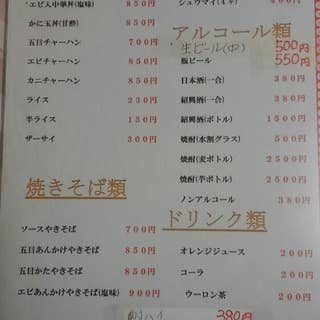 エビ入中華丼(塩味) 850円
かに玉丼(甘酢) 850円
五目チャーハン 700円
エビチャーハン 850円
カニチャーハン 850円
ライス 230円
半ライス 150円
ザーサイ 300円
焼きそば類
ソースやきそば 700円
五目あんかけやきそば 850円
五目かたやきそば 850円
エビあんかけやきそば(塩味) 900円
シュウマイ(4ヶ)
アルコール類
生ビール(中) 500円
瓶ビール 550円
日本酒(一合) 380円
紹興酒(一合) 280円
紹興酒(ボトル) 1500円
焼酎(水割グラス) 500円
焼酎(麦ボトル) 2500円
焼酎(芋ボトル) 2500円
ノンアルコール 380円
ドリンク類
オレンジジュース 200円
コーラ 200円
ウーロン茶 200円
酎ハイ 380円